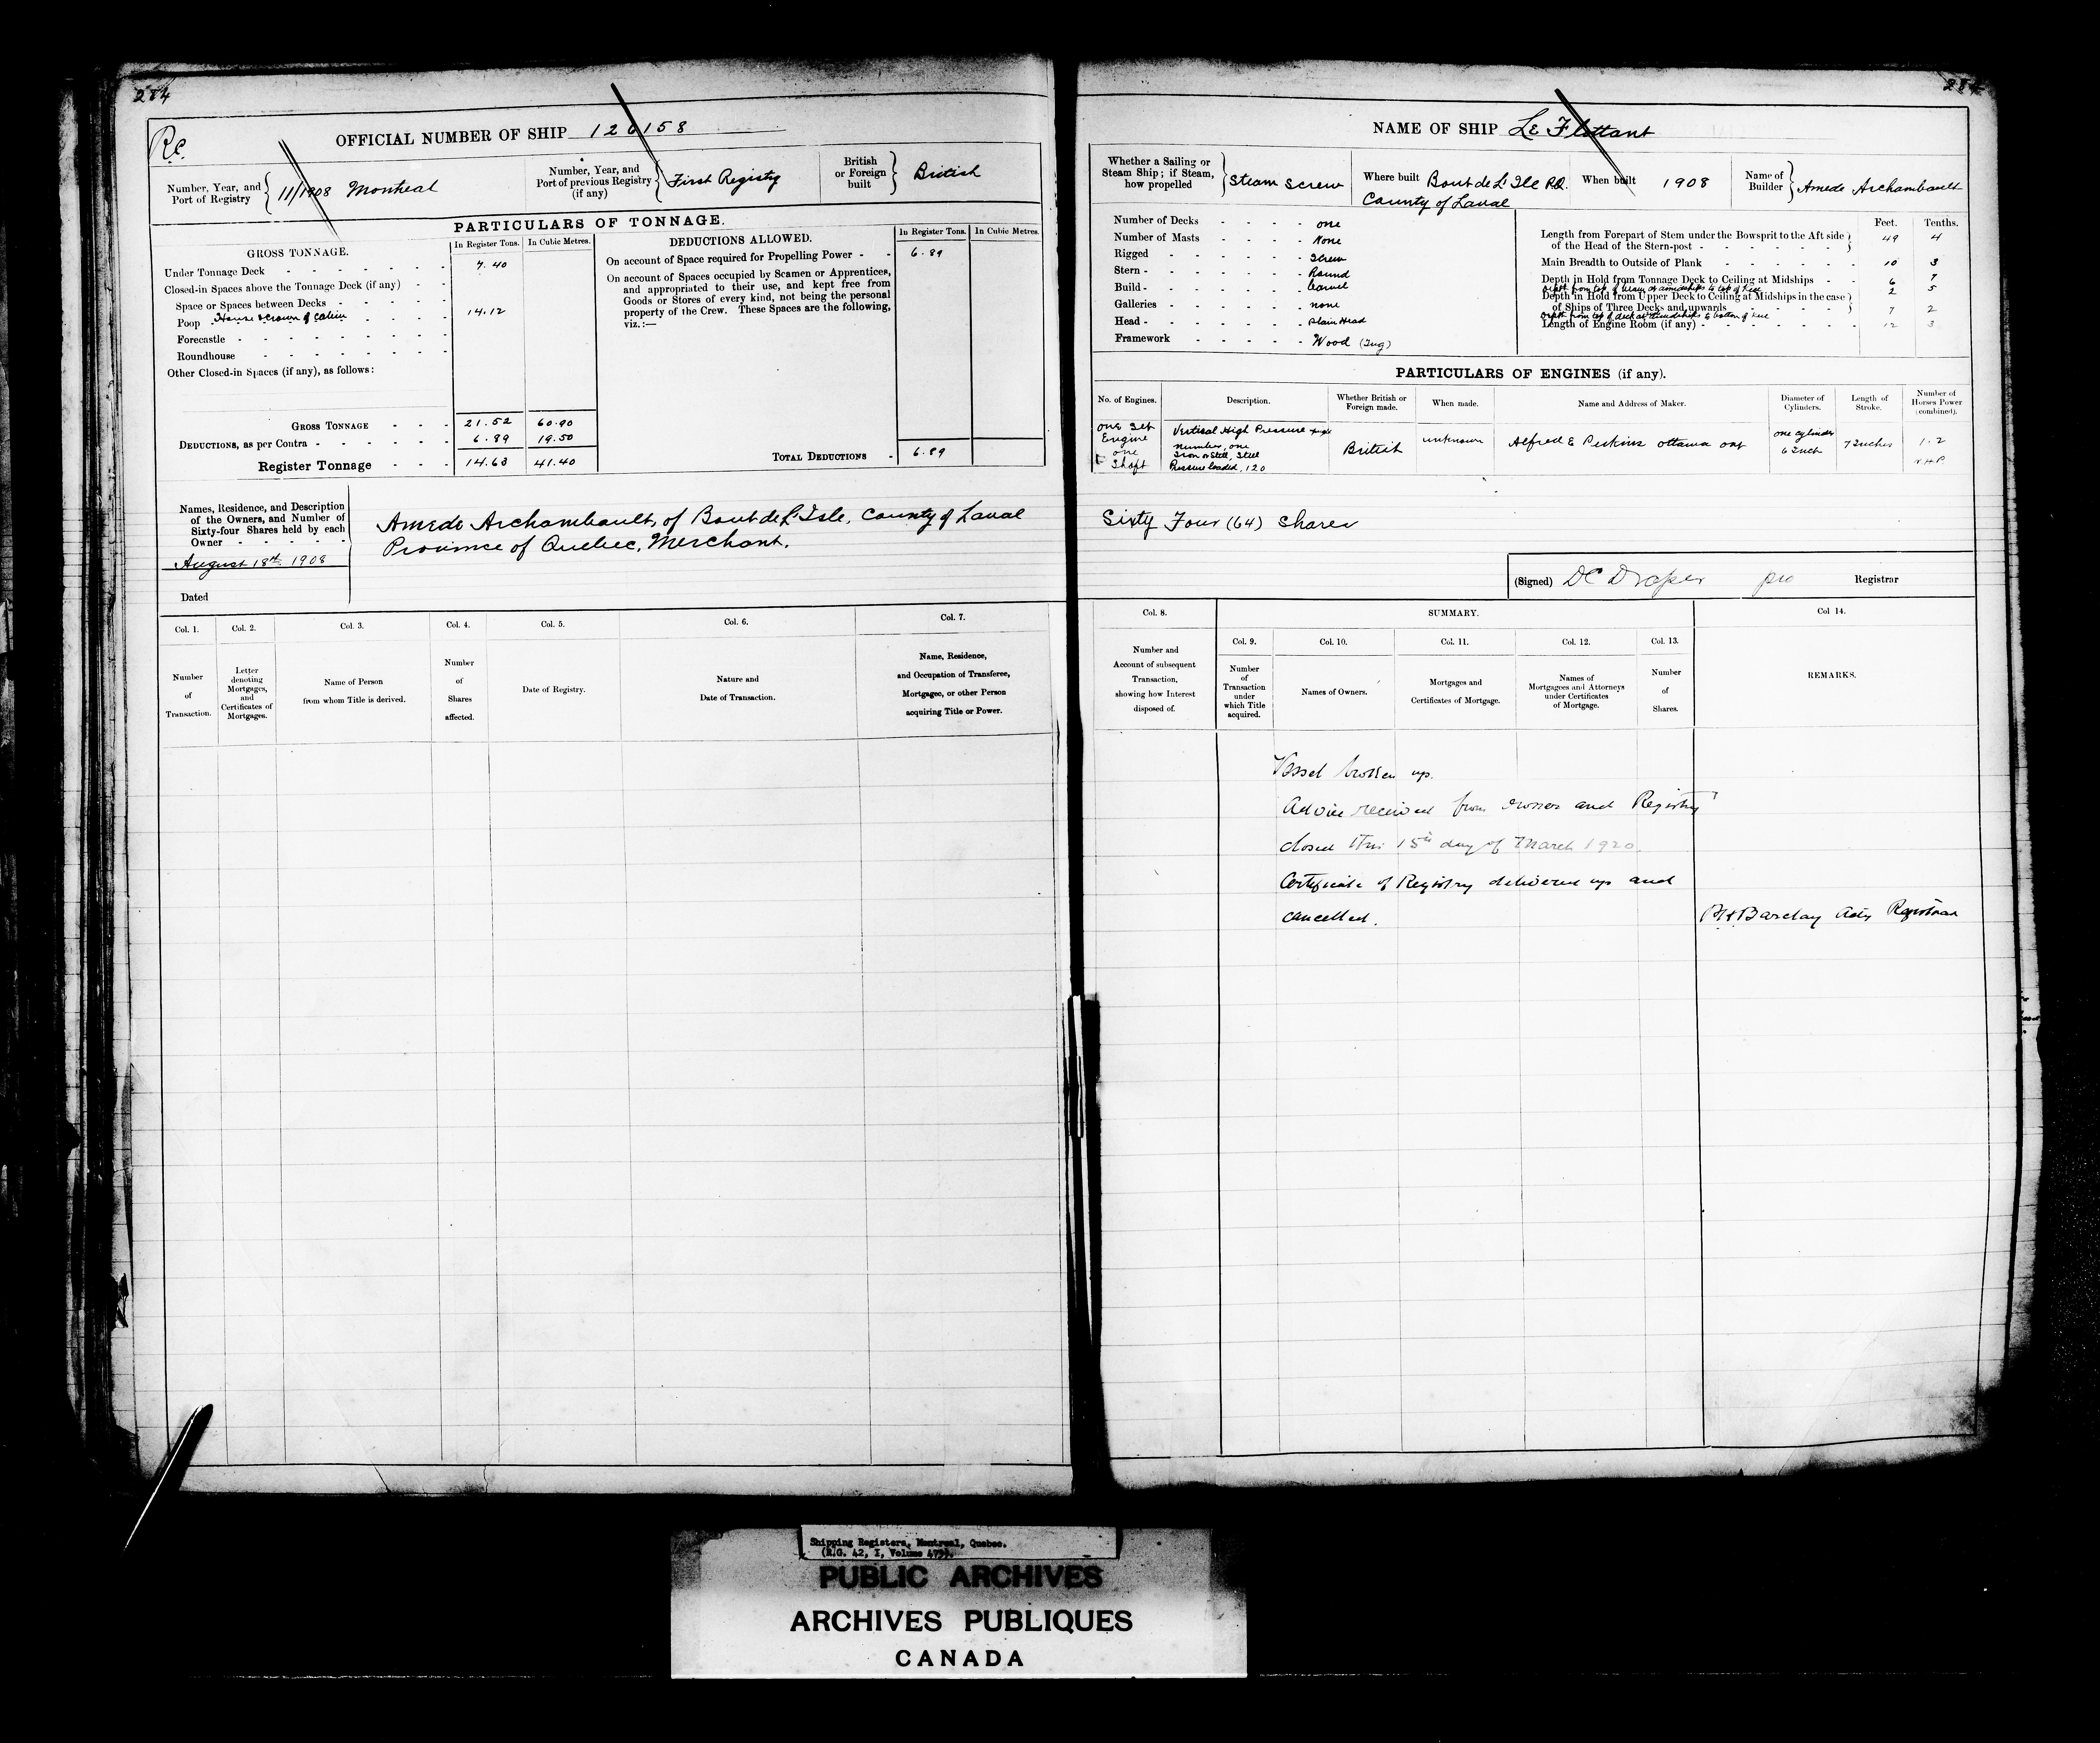 284
284
Re.
OFFICIAL NUMBER OF SHIP 126158
Number, Year, and Port of Registry } 11/1908 Montreal
Number, Year, and Port of previous Registry (if any) { First Registry
British or Foreign built } British
PARTICULARS OF TONNAGE.
GROSS TONNAGE.
In Register Tons.
In Cubic Metres.
Under Tonnage Deck - - - - - - - 7.40
Closed-in Spaces above the Tonnage Deck (if any) - -
Space or Spaces between Decks - - - - -
Poop House & crown of cabin - - - - 14.12
Forecastle - - - - - - - - -
Roundhouse - - - - - - - -
Other Closed-in Spaces (if any), as follows:
GROSS TONNAGE 21.52 60.90
DEDUCTIONS, as per Contra - - - - - - 6.89 19.50
Register Tonnage - - - 14.63 41.40
DEDUCTIONS ALLOWED.
In Register Tons.
In Cubic Metres.
On account of Space required for Propelling Power - - 6.89
On account of Spaces occupied by Seamen or Apprentices,
and appropriated to their use, and kept free from
Goods or Stores of every kind, not being the personal
property of the Crew. These Spaces are the following,
viz.:—
TOTAL DEDUCTIONS - 6.89
Names, Residence, and Description
of the Owners, and Number of
Sixty-four Shares held by each
Owner - - - - -
August 18th 1908
Dated
Amede Archambault, of Bout de L'Isle, County of Laval
Province of Quebec, Merchant.
Col. 1.
Number of Transaction.
Col. 2.
Letter denoting Mortgages, and Certificates of Mortgages.
Col. 3.
Name of Person from whom Title is derived.
Col. 4.
Number of Shares affected.
Col. 5.
Date of Registry.
Col. 6.
Nature and Date of Transaction.
Col. 7.
Name, Residence, and Occupation of Transferee, Mortgagee, or other Person acquiring Title or Power.
NAME OF SHIP Le Flottant
Whether a Sailing or Steam Ship; if Steam, how propelled { Steam Screw
Where built Bout de L'Ile P.Q.
County of Laval
When built 1908
Name of Builder } Amede Archambault
Number of Decks - - - - one
Number of Masts - - - - None
Rigged - - - - - Screw
Stern - - - - - - Round
Build - - - - - - Carvel
Galleries - - - - - none
Head - - - - - - Plain Head
Framework - - - - - Wood (Tug)
Feet.
Tenths.
Length from Forepart of Stem under the Bowsprit to the Aft side
of the Head of the Stern-post - - - - - - } 49 4
Main Breadth to Outside of Plank - - - - - - 10 3
Depth in Hold from Tonnage Deck to Ceiling at Midships - - 6 7
depth from top of beam at amidships to top of keel 2 5
Depth in Hold from Upper Deck to Ceiling at Midships in the case
of Ships of Three Decks and upwards - - - - - } 7 2
depth from top of deck at amidships to bottom of keel
Length of Engine Room (if any) - - - - - - - 12 3
PARTICULARS OF ENGINES (if any).
No. of Engines.
Description.
Whether British or Foreign made.
When made.
Name and Address of Maker.
Diameter of Cylinders.
Length of Stroke.
Number of Horses Power (combined).
one Set
Engine
one
Shaft
Vertical High Pressure
Number, one
Iron or Steel, Steel
Pressure loaded, 120
British
unknown
Alfred E Perkins Ottawa Ont
one cylinder
6 Inch
7 Inches
1.2
N.H.P.
Sixty Four (64) Shares
(Signed) DC Draper pro Registrar
Col. 8.
Number and Account of subsequent Transaction, showing how Interest disposed of.
SUMMARY.
Col. 9.
Number of Transaction under which Title acquired.
Col. 10.
Names of Owners.
Col. 11.
Mortgages and Certificates of Mortgage.
Col. 12.
Names of Mortgagees and Attorneys under Certificates of Mortgage.
Col. 13.
Number of Shares.
Col 14.
REMARKS.
Vessel broken up.
Advice received from owner and Registry
closed this 15th day of March 1920.
Certificate of Registry delivered up and
cancelled. Barclay Actg Registrar
Shipping Registers, Montreal, Quebec.
(R.G. 42, I, Volume
PUBLIC ARCHIVES
ARCHIVES PUBLIQUES
CANADA